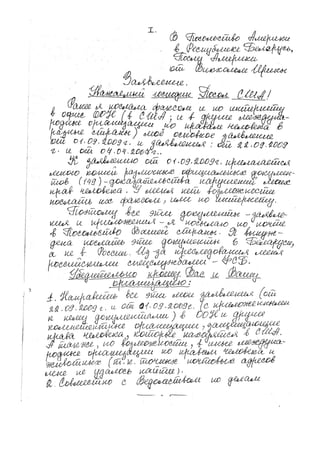 I.
В Посольство Америки
в Республике Беларусь,
Послу Америки
от Ирины
Заявление.
Уважаемый господин Посол США!
Ранее я послала факсом и по интернету
в офис ООН (в США), и в другие междуна-
родные организации по правам человека в
разные страны) моё основное заявление
от 01.09.2009г. и заявления: от 22.09.2009
г. и от
К заявлению от 01.09.2009г. прилагается
много копий различных официальных докумен-
тов (149) - доказательства нарушений моих
прав человека. У меня нет возможности
послать их факсом, или по интернету.
Поэтому все эти документы - заявле-
ния и приложения - я посылаю по почте
в Посольство Вашей страны. Я вынуж-
дена послать эти документы в Беларуси,
а не в России. Из за преследования меня
российскими спецслужбами - ФСБ.
Убедительно прошу Вас и Вашу
организацию:
1. Направить все эти мои заявления (от
22.09.2009 г. и от 01.09.2009г. (с приложенными
к нему документами) в ООН и другие
компетентные организации, защищающие
права человека, которые находятся в США.
А также, по возможности, в иные междуна-
родные организации по правам человека и
животных (т.к. точных почтовых адресов
мне не удалось найти).
2. Совместно с Ведомством по делам